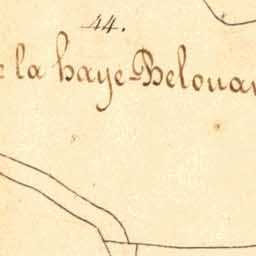 44.
e la haye-Belouar